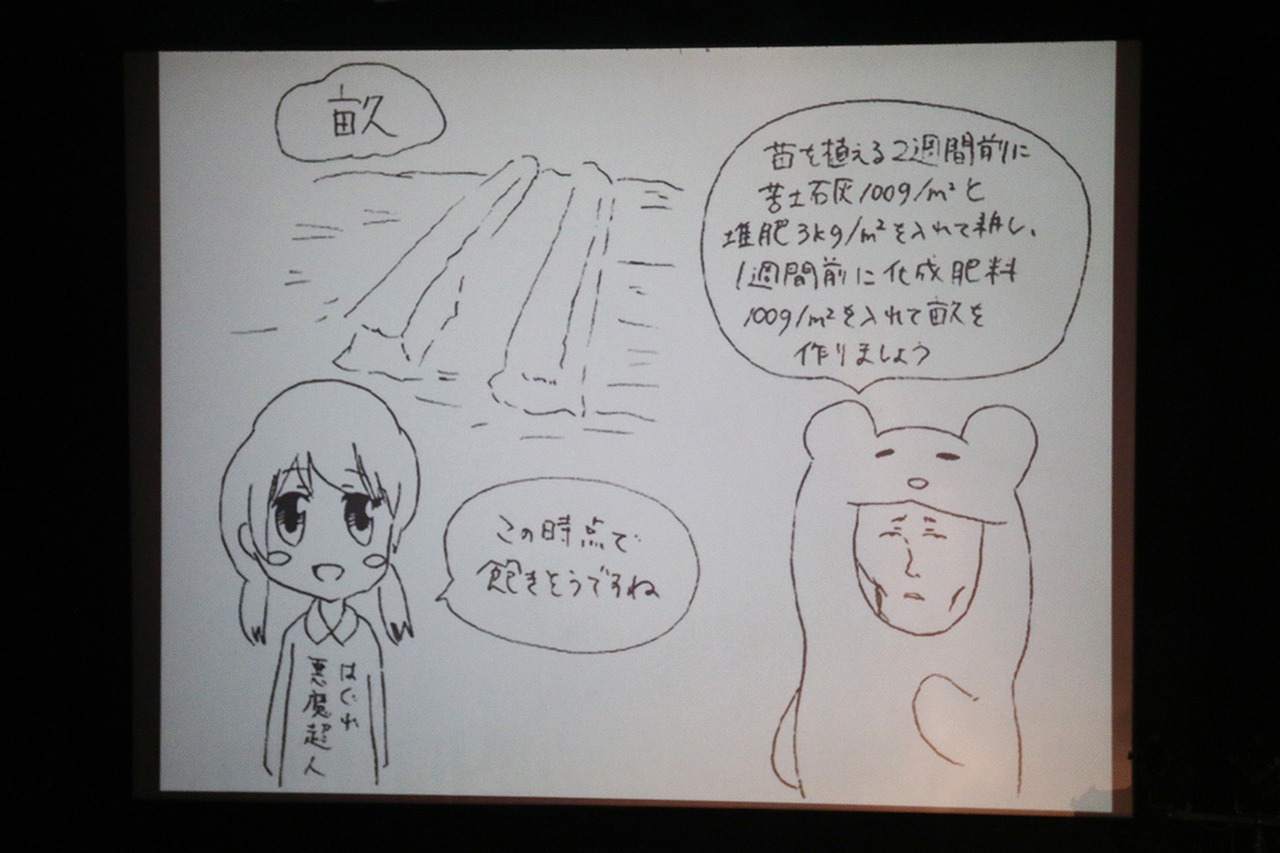 畝
苗を植える2週間前に
苦土石灰100g/m²と
堆肥3kg/m²を入れて耕し、
1週間前に化成肥料
100g/m²を入れて畝を
作りましょう
この時点で
飽きそうですね
はぐれ
悪魔超人